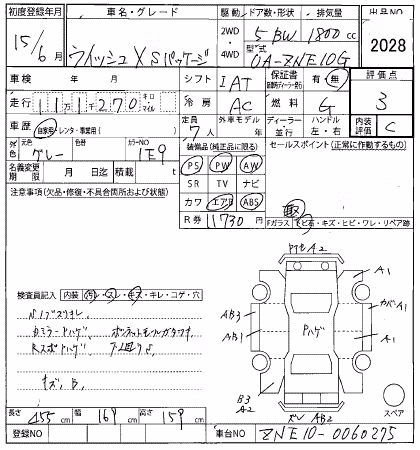 初度登録年月 車名・グレード 駆動 ドア数・形状 排気量 出品NO
15/6月 ウィッシュ X Sパッケージ 2WD・4WD 5 BW 1800cc 2028
型式 UA-ZNE10G
車検 年 月 シフト IAT 保証書 有・無 評価点
走行 11万1千270 キロ マイル 冷房 AC 燃料 G 3
車歴 自家用・レンタ・事業用( ) 定員 7人 外車モデル 年 ディーラー・並行 ハンドル 左・右 内装評価 C
外色 グレー 色替 カラーNO 1E9 装備品(純正品に限る) セールスポイント(正常に作動するもの)
名義変更期限 月 日迄 積載 t PS PW AW
注意事項(欠品・修復・不具合箇所および状態) SR TV ナビ
カワ エアB ABS
R券 11730円
Fガラス トビ石・キズ・ヒビ・ワレ・リペア跡
アナ A2
A1
カバーA1
AB3
AB1
Pハゲ
A1
B3
A2
AB2
スペア
検査員記入 内装 汚・スレ・キズ・キレ・コゲ・穴
キズ、B、
長さ 455cm 幅 169cm 高さ 159cm
登録NO 車台NO ZNE10-0060275